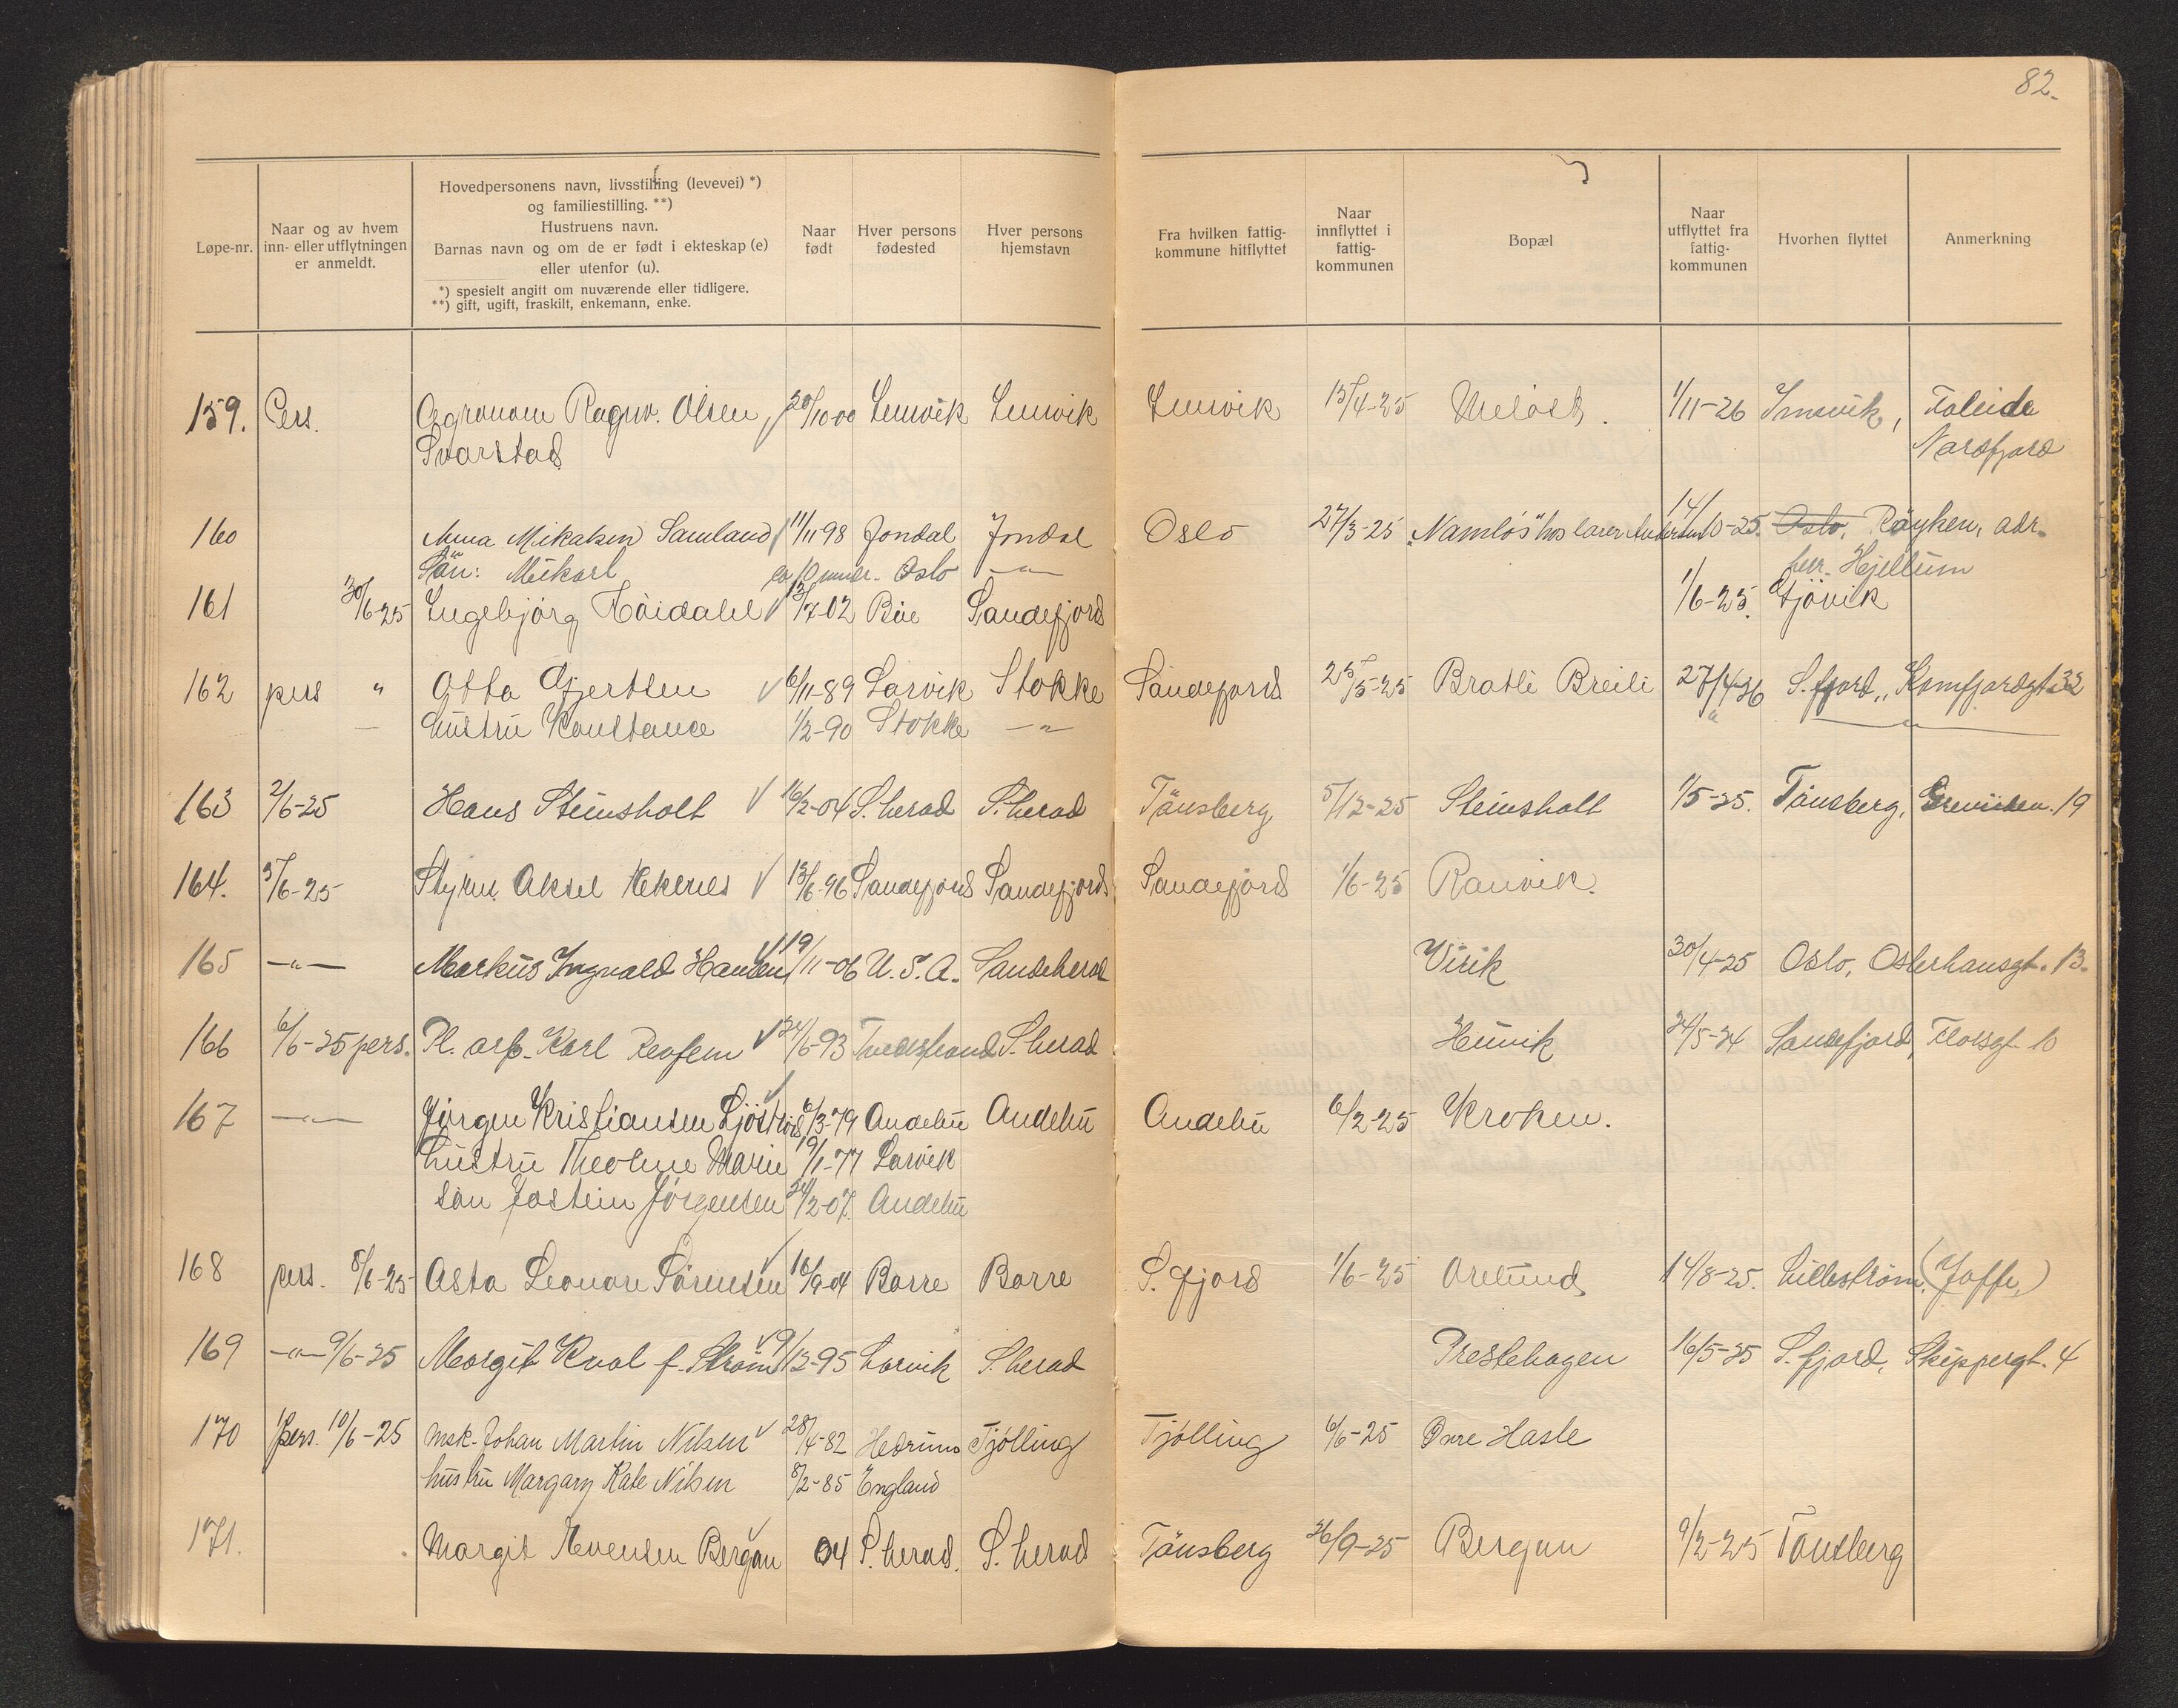 82.
Løpe-nr.
Naar og av hvem
inn- eller utflytningen
er anmeldt.
Hovedpersonens navn, livsstilling (levevei) *)
og familiestilling. **)
Hustruens navn.
Barnas navn og om de er født i ekteskap (e)
eller utenfor (u).
*) spesielt angitt om nuværende eller tidligere.
**) gift, ugift, fraskilt, enkemann, enke.
Naar
født
Hver persons
fødested
Hver persons
hjemstavn
Fra hvilken fattig-
kommune hitflyttet
Naar
innflyttet i
fattig-
kommunen
Bopæl
Naar
utflyttet fra
fattig-
kommunen
Hvorhen flyttet
Anmerkning
159. Pers. Agronom Ragnv. Olsen, 20/10 00 15/4-25 1/11-26 Faleide
Svarstad Nordfjord
160 Anna Mikalsen Samland 11/11 98 Jondal Jondal Oslo 27/3-25 "Namløs" hos lærer 14/10-25. Oslo, Røyken, adr.
Søn: Mikael Oslo —"— Hjellum
161 30/6-25 Ingebjörg Höidahl 7-02 Böe Sandefjord 1/6-25. Gjövik
162 pers " Otto Gjertsen 6/11-89 Larvik Stokke Sandefjord 25/5-25 Bratli Breili 27/4-26 S.fjord,
hustru Konstance 1/2-90 Stokke —"— "
163 2/6-25 Hans Steinsholt 16/2-04 S.herad S.herad Tönsberg 5/12-25 Steinsholt 1/5-25. Tönsberg, 19
164. 5/6-25 Styrm. Aksel Ekenes 13/6-96 Sandefjord Sandefjord Sandefjord 1/6-25 Ranvik.
165 —"— Markus Ingvald Hansen 19/11-06 U.S.A. Sandeherad Virik 30/4-25 Oslo, Osterhausgt. 13.
166 6/6-25 pers. Pl. arb. Karl 24/6-93 Tvedestrand S.herad Heimik 24/5-24 Sandefjord, 10
167 —"— Jörgen Kristiansen 6/3-79 Andebu Andebu Andebu 6/2-25 Kroken.
hustru Theoline Marie 19/1-77 Larvik
sön Jostein Jörgensen 24/2-07. Andebu
168 pers. 8/6-25 Asta Leonore Sörensen 16/9-04 Borre Borre S.fjord 1/6-25 Orelund 14/8-25. Lilleström. (Joffe.)
169 —"— 9/6-25 Margit Kval f. Ström 9/12-95 Larvik S.herad Prestehagen 16/5-25 S.fjord, Skippergt. 4
170 Pers. 10/6-25 msk. Johan Martin Nilsen 28/4-82 Hedrum Tjölling Tjölling 6/6-25 Hasle
hustru Margary Kate Nilsen 8/2-85 England
171. Margit Evensen Bergan 04 S.herad. S.herad Tönsberg 26/9-25 Bergan 9/2-25 Tönsberg